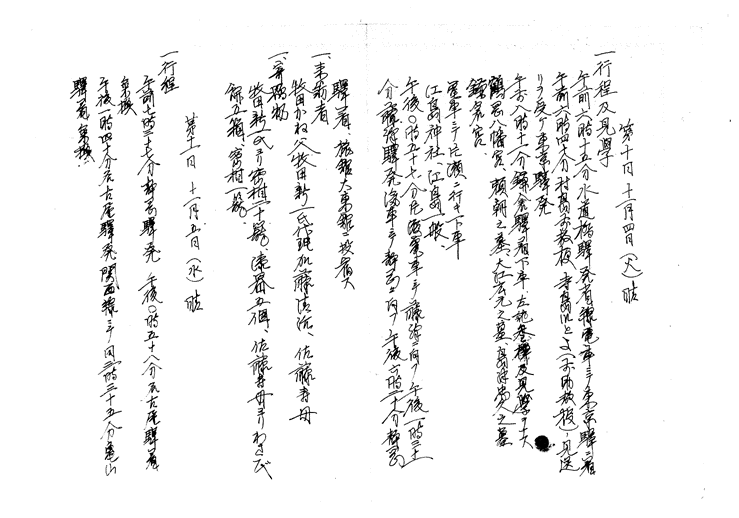 第十日 十一月四日（火） 晴
一、行程及見學
午前六時十五分水道橋驛発省線電車ニテ東京驛ニ着
午前六時四十分村高 教授 寺島 とよ 助教授 見送
リヲ受ケ東京驛発
午前八時十一分鎌倉驛着下車 左記参拝及見學ヲナス
鶴岡八幡宮 頼朝之墓 大江広元之墓 島津忠久之墓
鎌倉宮
電車ニテ片瀬ニ行キ下車
江島神社 江島一拔
午後〇時五十七分片瀬電車ニテ藤沢ニ向ヒ 午後一時三十
分藤沢驛発汽車ニテ静岡ニ向ヒ 午後六時二十分静岡
驛着、旅館大東館ニ投宿ス
一、来訪者
牧田かね 父牧田新一氏代理加藤清 、佐藤寿母
一、寄贈物
牧田新一氏ヨリ蜜柑二十 、漆器五個、佐藤寿母ヨリわさび
五箱、蜜柑一
第十一日 十一月五日（水） 晴
一、行程
午前 時三十七分静岡驛発 午後〇時五十八分名古屋驛着
乗換
午後一時四十分名古屋驛発関西線ニテ同三時三十五分亀山
驛着乗換